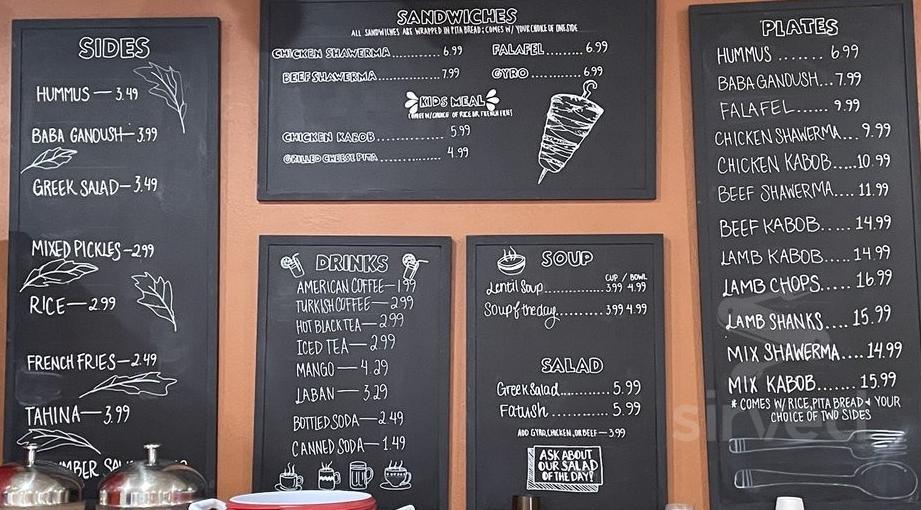 SIDES
HUMMUS — 3.49
BABA GANOUSH — 3.99
GREEK SALAD — 3.49
MIXED PICKLES — 2.99
RICE — 2.99
FRENCH FRIES — 2.49
TAHINA — 3.99
SANDWICHES
ALL SANDWICHES ARE WRAPPED IN PITA BREAD; COMES W/ YOUR CHOICE OF ONE SIDE
CHICKEN SHAWERMA.............. 6.99
BEEF SHAWERMA.............. 7.99
FALAFEL........... 6.99
GYRO........... 6.99
KIDS MEAL
COMES W/ CHOICE OF RICE OR FRENCH FRIES
CHICKEN KABOB.............. 5.99
GRILLED CHEESE PITA.............. 4.99
DRINKS
AMERICAN COFFEE — 1.99
TURKISH COFFEE — 2.99
HOT BLACK TEA — 2.99
ICED TEA — 2.99
MANGO — 4.29
LABAN — 3.29
BOTTLED SODA — 2.49
CANNED SODA — 1.49
SOUP
CUP / BOWL
Lentil Soup............. 3.99 4.99
Soup of the day.......... 3.99 4.99
SALAD
Greek Salad............ 5.99
Fatush............ 5.99
ADD GYRO, CHICKEN, OR BEEF — 3.99
ASK ABOUT
OUR SALAD
OF THE DAY!
PLATES
HUMMUS ....... 6.99
BABA GANOUSH... 7.99
FALAFEL...... 9.99
CHICKEN SHAWERMA... 9.99
CHICKEN KABOB.....10.99
BEEF SHAWERMA.... 11.99
BEEF KABOB...... 14.99
LAMB KABOB..... 14.99
LAMB CHOPS..... 16.99
LAMB SHANKS.... 15.99
MIX SHAWERMA.... 14.99
MIX KABOB....... 15.99
* COMES W/ RICE, PITA BREAD & YOUR
CHOICE OF TWO SIDES
sirved